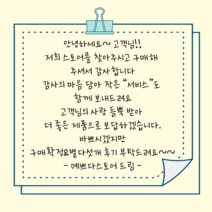 안녕하세요~ 고객님!!
저희 스토어를 찾아주시고 구매해
주셔서 감사합니다
감사의 마음 담아 작은 "서비스"도
함께 보내드려요
고객님의 사랑 듬뿍 받아
더 좋은 제품으로 보답하겠습니다.
바쁘시겠지만
구매확정&별다섯개 후기 부탁드려요~~
- 예쁘다스토어 드림 -